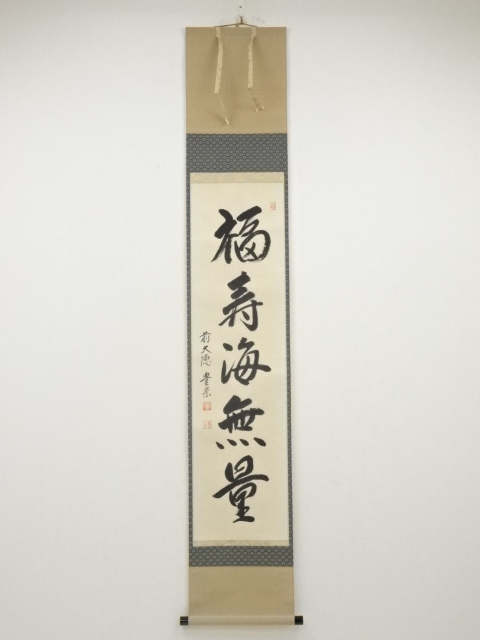 福寿海無量
前大徳